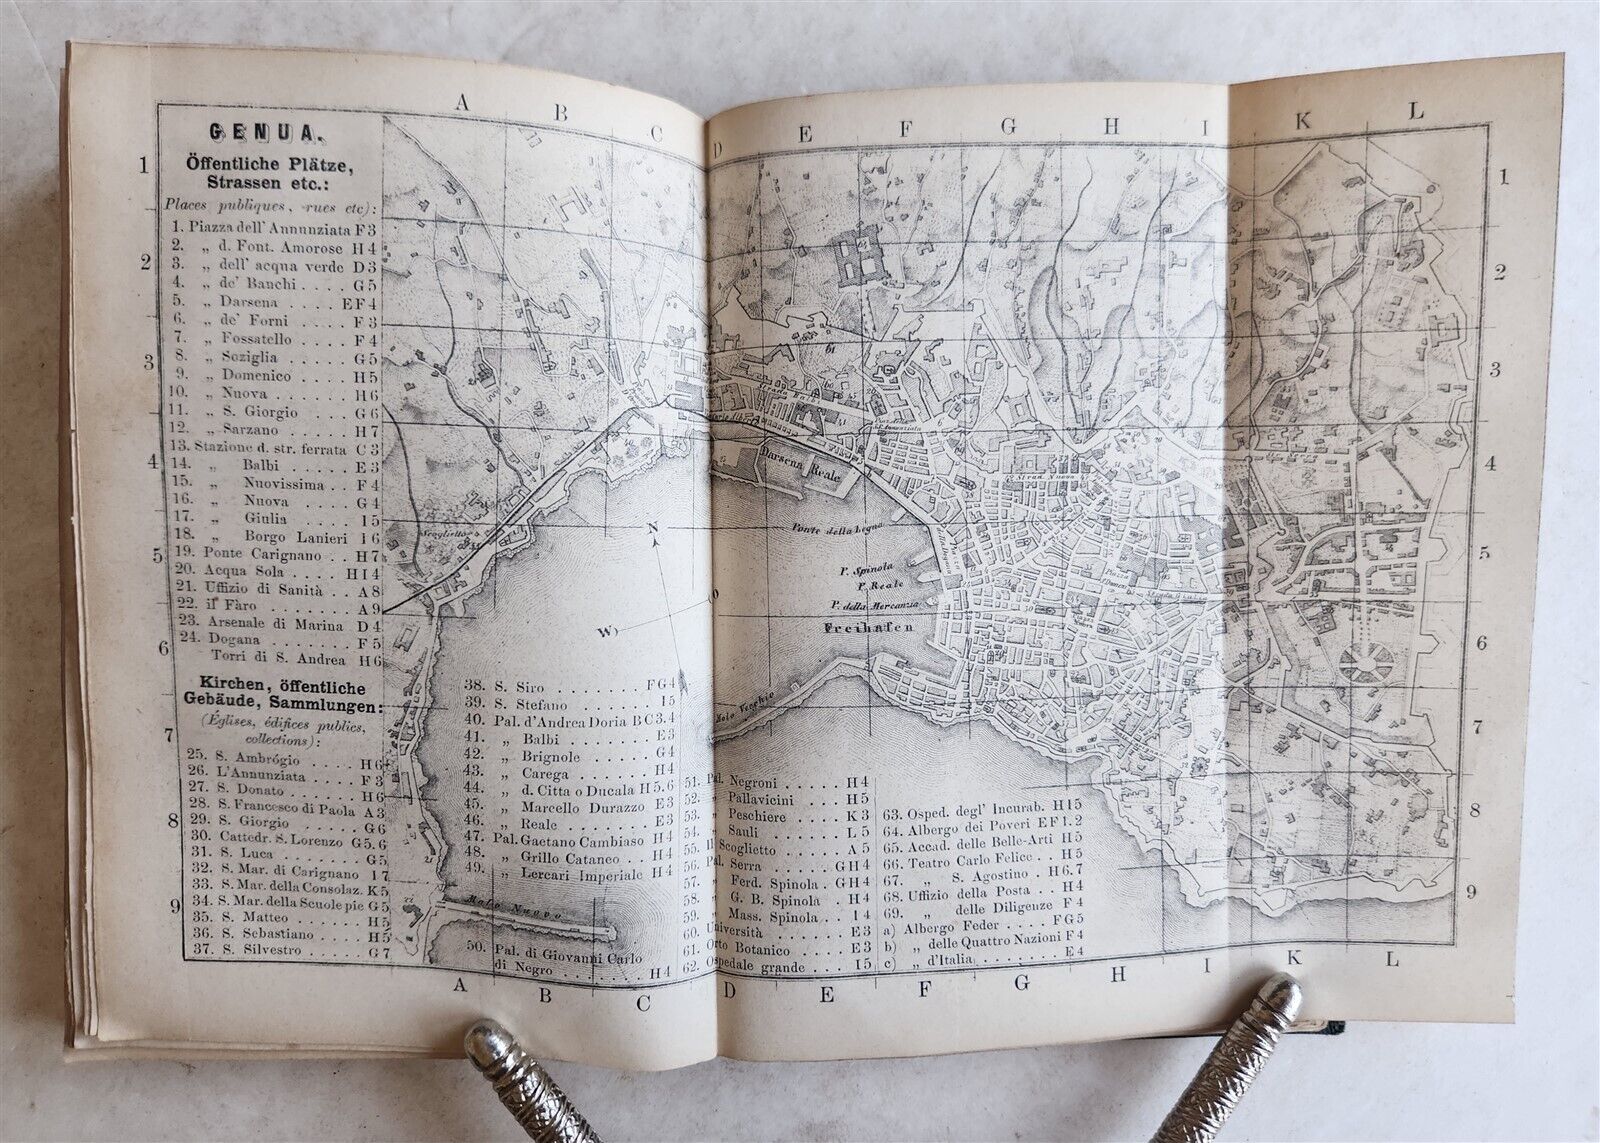 A B C D E F G H I K L
GENUA.
Öffentliche Plätze,
Strassen etc.:
Places publiques, rues etc):
1. Piazza dell' Annunziata F 3
2. „ d. Font. Amorose H 4
3. „ dell' acqua verde D 3
4. „ de' Banchi .... G 5
5. „ Darsena .... E F 4
6. „ de' Forni .... F 3
7. „ Fossatello .... F 4
8. „ Soziglia ..... G 5
9. „ Domenico .... H 5
10. „ Nuova ..... H 6
11. „ S. Giorgio ... G 6
12. „ Sarzano ..... H 7
13. Stazione d. str. ferrata C 3
14. „ Balbi ..... E 3
15. „ Nuovissima .. F 4
16. „ Nuova .... G 4
17. „ Giulia .... I 5
18. „ Borgo Lanieri I 6
19. Ponte Carignano .. H 7
20. Acqua Sola .... H I 4
21. Uffizio di Sanità .. A 8
22. il Fàro ....... A 9
23. Arsenale di Marina D 4
24. Dogana ...... F 5
Torri di S. Andrea H 6
Kirchen, öffentliche
Gebäude, Sammlungen:
(Églises, édifices publics,
collections):
25. S. Ambrógio .... H 6
26. L'Annunziata .... F 3
27. S. Donato ..... H 6
28. S. Francesco di Paola A 3
29. S. Giorgio ..... G 6
30. Cattedr. S. Lorenzo G 5.6
31. S. Luca ...... G 5
32. S. Mar. di Carignano I 7
33. S. Mar. della Consolaz. K 5
34. S. Mar. della Scuole pie G 5
35. S. Matteo ..... H 5
36. S. Sebastiano .... H 5
37. S. Silvestro .... G 7
38. S. Siro ....... F G 4
39. S. Stefano ...... I 5
40. Pal. d'Andrea Doria B C 3. 4
41. „ Balbi ....... E 3
42. „ Brignole ..... G 4
43. „ Carega ...... H 4
44. „ d. Citta o Ducala H 5. 6
45. „ Marcello Durazzo E 3
46. „ Reale ....... E 3
47. Pal. Gaetano Cambiaso H 4
48. „ Grillo Cataneo .. H 4
49. „ Lercari Imperiale H 4
50. Pal. di Giovanni Carlo
di Negro ....... H 4
51. Pal. Negroni .... H 4
52. „ Pallavicini ... H 5
53. „ Peschiere ... K 3
54. „ Sauli ..... L 5
55. Il Scoglietto ..... A 5
56. Pal. Serra ..... G H 4
57. „ Ferd. Spinola . G H 4
58. „ G. B. Spinola .. H 4
59. „ Mass. Spinola .. I 4
60. Università ...... E 3
61. Orto Botanico .... E 3
62. Ospedale grande ... I 5
63. Osped. degl' Incurab. H I 5
64. Albergo dei Poveri E F 1. 2
65. Accad. delle Belle-Arti H 5
66. Teatro Carlo Felice .. H 5
67. „ S. Agostino . H 6.7
68. Uffizio della Posta .. H 4
69. „ delle Diligenze F 4
a) Albergo Feder .... F G 5
b) „ delle Quattro Nazioni F 4
c) „ d'Italia ....... E 4
Darsena Reale
Ponte della Legna
P. Spinola
P. Reale
P. della Mercanzia
Freihafen
Molo Vecchio
Molo Nuovo
Scoglietto
Strada Balbi
Strad. Nuova
Strada Giulia
N
W
O
61
1 2 3 4 5 6 7 8 9
1 2 3 4 5 6 7 9
A B C D E F G H I K L